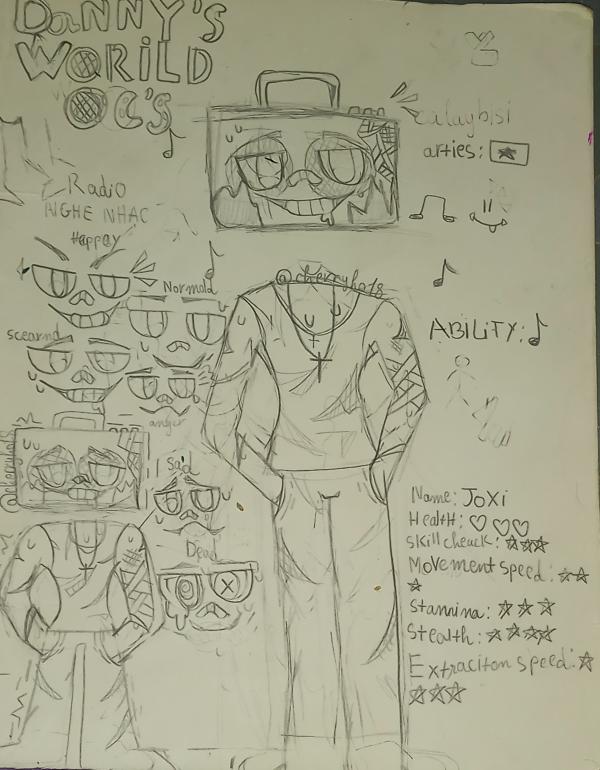 DANNY'S
WORiLD
OC'S
calaybisi
arties:
Radio
NGHE NHAC
Happey
Normold
scearnd
anger
Sad
Dead
@cherryhats
@cherryhats
ABiLiTY:
Name: JOXi
Health:
skill cheack:
Movement speed:
Stannina:
Stealth:
Extraciton speed: